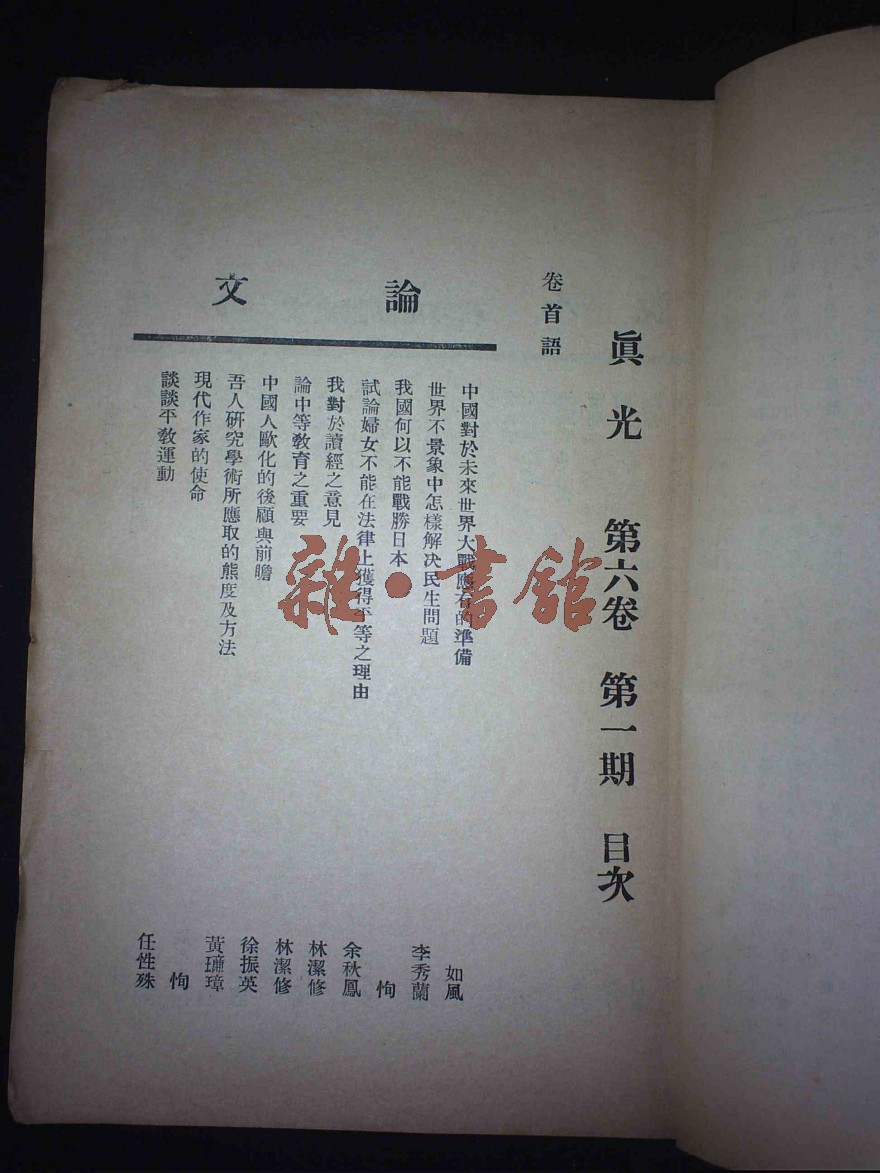 眞光 第六卷 第一期 目次
卷首語
論文
中國對於未來世界大戰應有的準備 如風
世界不景象中怎樣解决民生問題 李秀蘭
我國何以不能戰勝日本 恂
試論婦女不能在法律上獲得平等之理由 余秋鳳
我對於讀經之意見 林潔修
論中等教育之重要 林潔修
中國人歐化的後顧與前瞻 徐振英
吾人研究學術所應取的態度及方法 黃璀璋
現代作家的使命 恂
談談平教運動 任性殊
雜·書館